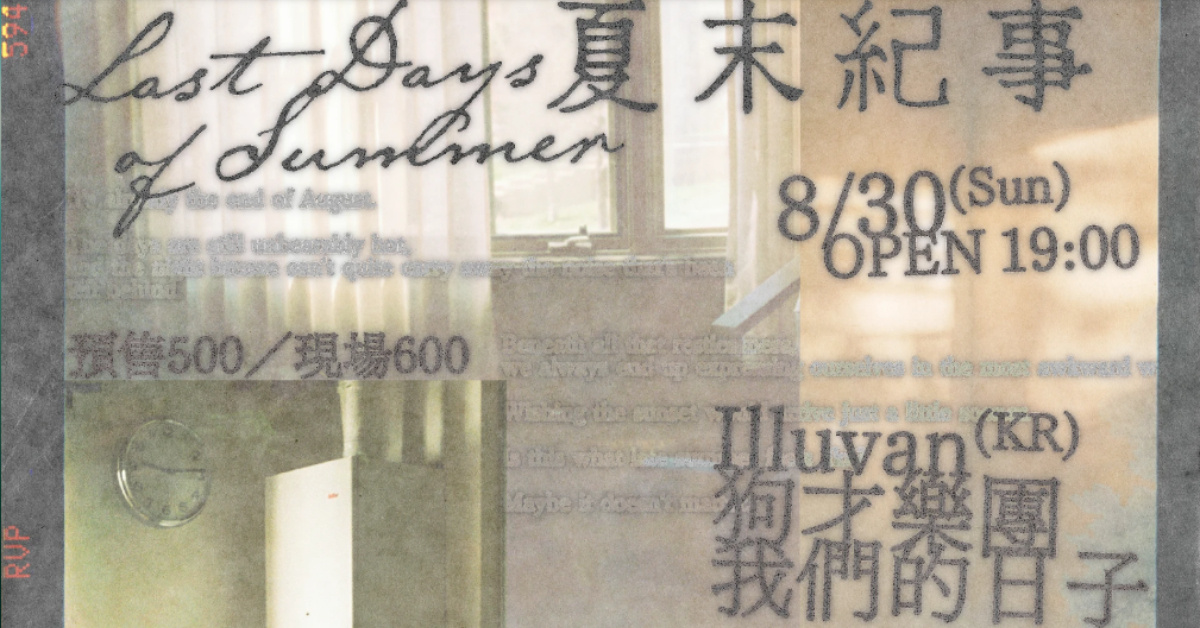 594
Last Days
of Summer
夏末紀事
the end of August.
still unbearably hot,
can't quite carry
8/30(Sun)
OPEN 19:00
預售500／現場600
Beneath all that
we always end up expressing ourselves in the most awkward
Wishing the sunset just a little
is this what
Maybe it doesn't
Illuvan(KR)
狗才樂團
我們的日子
RVP